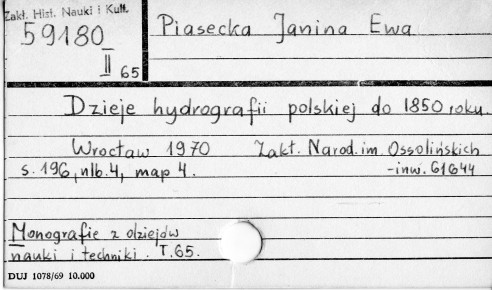 Zakł. Hist. Nauki i Kult.
59180
II 65
Piasecka Janina Ewa
Dzieje hydrografii polskiej do 1850 roku.
Wrocław 1970 Zakł. Narod. im. Ossolińskich
s. 196, nlb. 4, map 4. -inw. 61644
Monografie z dziejów
nauki i techniki. T. 65.
DUJ 1078/69 10.000